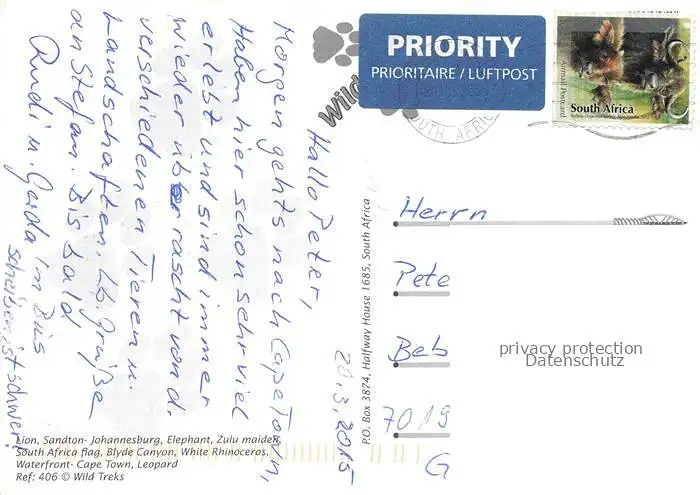 20.3.2015
Hallo Peter,
Morgen gehts nach CapeTown,
Haben hier schon sehr viel
erlebt und sind immer
wieder überrascht von d.
verschiedenen Tieren u.
Landschaften. Lb. Grüße
an Stefan. Bis bald
Rudi u. Gerda
Im Bus
schreiben ist schwer!
Wild
PRIORITY
PRIORITAIRE / LUFTPOST
SOUTH AFRIC
Airmail Postcard
South Africa
P.O. Box 3874, Halfway House 1685, South Africa
Herrn
Pete
Beb
7019
G
privacy protection
Datenschutz
Lion, Sandton- Johannesburg, Elephant, Zulu maiden,
South Africa flag, Blyde Canyon, White Rhinoceros,
Waterfront- Cape Town, Leopard
Ref: 406 © Wild Treks